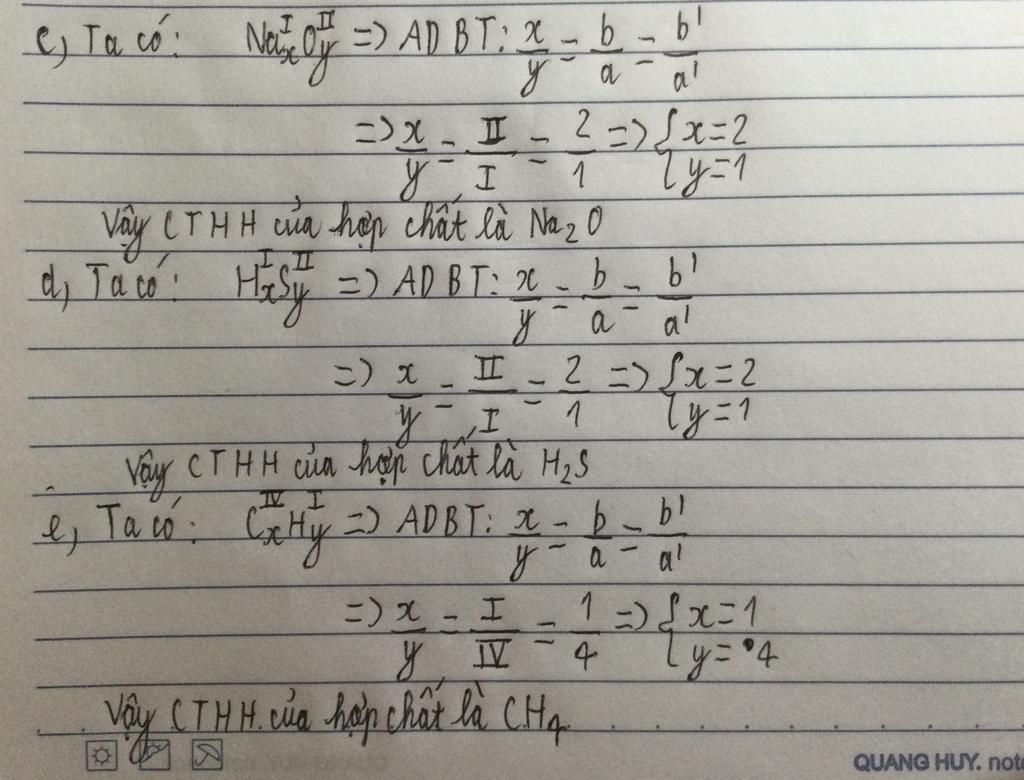 c, Ta có: Na_x^I O_y^II => ADBT: x/y = b/a = b'/a'
=> x/y = II/I = 2/1 => { x = 2 y = 1
Vậy CTHH của hợp chất là Na₂O
d, Ta có: H_x^I S_y^II => ADBT: x/y = b/a = b'/a'
=> x/y = II/I = 2/1 => { x = 2 y = 1
Vậy CTHH của hợp chất là H₂S
e, Ta có: C_x^IV H_y^I => ADBT: x/y = b/a = b'/a'
=> x/y = I/IV = 1/4 => { x = 1 y = 4
Vậy CTHH của hợp chất là CH₄
QUANG HUY. note